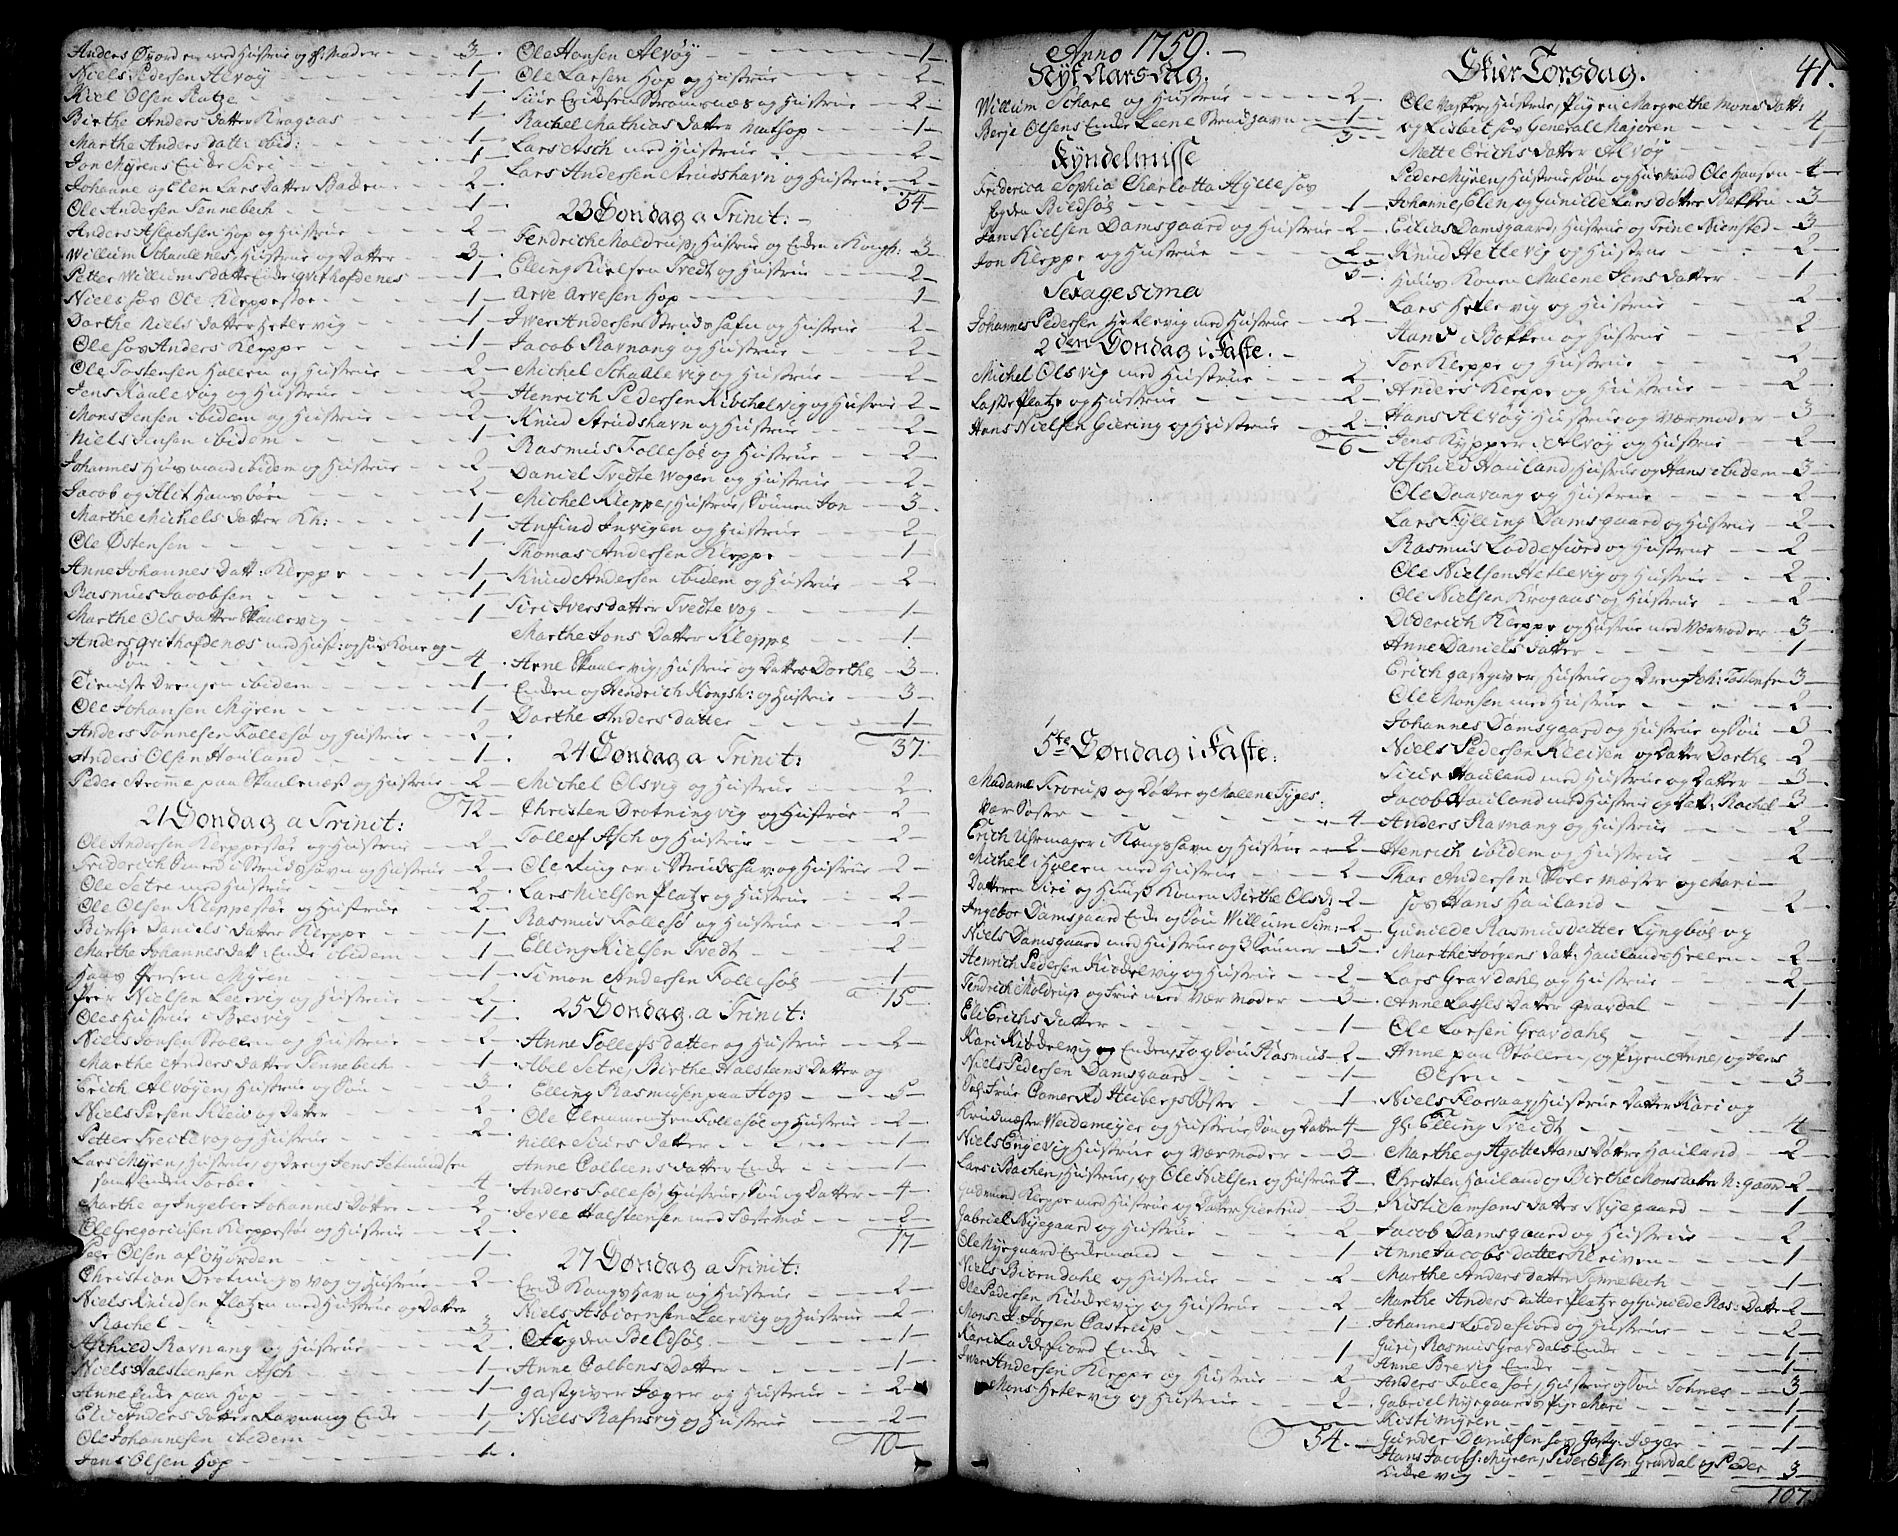 Anders Øvorden med Hustrue og H: Moder - 3 -
Niels Pedersen Alvøy - 1 -
Niel Olsen Platze - 1 -
Birthe Anders Datter Kragaas - 1 -
Marthe Anders datt: ibid: - 1 -
Jon Myrens Enke Siri - 1 -
Johanne og Elen Lars Datter Backen - 2 -
Ole Andersen Tennebech - 1 -
Anders Aslachsen Hop og Hustrue - 2 -
Willum Skaalenes, Hustrue og Datter - 3 -
Petter Willumsdatter Enke qvithofdenes - 1 -
Niels søv Ole Kleppestøe - 1 -
Dorthe Niels datter Hetlevig - 1 -
Ole søv Anders Kleppe - 1 -
Ole Torstensen Hollen og Hustrue - 2 -
Jens Kaalevog og Hustrue - 2 -
Mons Jensen ibidem og Hustrue - 2
Niels Jensen ibidem - 1
Johannes Huusmand ibidem og Hustrue - 2 -
Jacob og Alit Hansbørn - 2
Marthe Michels datter Kh: - 1 -
Ole Østensen - 1 -
Anne Johannes Datt: Kleppe - 1 -
Rasmus Jacobsen - 1 -
Marthe Ols datter Skaalevig - 1
Anders qvithofdenæs med Hust: og huuskone og
søn - 4
Tieniste Drengen ibidem - 1
Ole Johansen Myren - 1
Anders Tønnesen Follesø og Hustrue - 2
Anders Olsen Houland - 1
Peder Strømme paa Skaalenest og Hustrue - 2 -
72 -
21 Søndag a Trinit:
Ole Andersen Kleppestøe og Hustrue - 2
Friderich Smed i Strudshavn og Hustrue - 2 -
Ole Setre med Hustrue - 2
Ole Olsen Kleppestøe og Hustrue - 2
Birthe Daniels Datter Kleppe - 1
Marthe Johannes datt: Enke ibidem - 1 -
Hans Persen Myren - 1
Peer Nielsen Leervig og Hustrue - 2
Oles Hustrue i Brevig - 1
Niels Jonsen Stolen og Hustrue - 2
Marthe Anders datter Tennebech - 1
Erich Alvøyen, Hustrue og Søn - 3
Niels Persen Kleiv og Datter - 2
Petter Tveitevog og Hustrue - 2
Lars Myren, Hustrue, og Dreng Jens Setmundsen
samt Enken Torber - 4
Marthe og Ingebor Johannes Døttre - 2
Ole Gregoriusen Kleppestøe og Hustrue - 2
Peer Olsen af Øyorden - 1
Christian Drotningsvog og Hustrue - 2 -
Niels Knudsen Platzen med Hustrue og Datter
Rachel - 3
Aschild Ravnang og Hustrue - 2
Niels Halstensen Asch - 1
Anne Enke paa Hop - 1
Eli Anders datter Ravnang Enke - 1
Ole Johannesen ibidem - 1
Jens Olsen Hop - 1
Ole Hansen Alvøy - 1 -
Ole Larsen Hop og Hustrue - 2
Siur Erichsen Strømsnæs og Hustrue - 2 -
Rachel Mathias datter Matsop - 1 -
Lars Asch med Hustrue - 2 -
Lars Andersen Strudshavn og Hustrue - 2 -
54 -
23 Søndag a Trinit:
Fendriche Moldrup, Hustrue og Enken i Kongh: 3
Elling Nielsen Tvedt og Hustrue - 2 -
Arve Arvesen Hop - 1
Iver Andersen Strudshafn og Hustrue - 2 -
Jacob Ravnang og Hustrue - 2 -
Michel Schaalevig og Hustrue - 2 -
Henrich Pedersen Kibchelvig og Hustrue 2 -
Knud Strudshavn og Hustrue - 2 -
Rasmus Follesøe og Hustrue - 2 -
Daniel Tvedtevogen og Hustrue - 2 -
Michel Kleppe, Hustrue, Sønnen Jon - 3 -
Anfind Invigen og Hustrue - 2 -
Thomas Andersen Kleppe - 1 -
Knud Andersen ibidem og Hustrue - 2 -
Siri Ivers datter Tvedtevog - 1 -
Marthe Jons Datter Kleppe - 1 -
Arne Skaalevig, Hustrue og Datter Dorthe - 3 -
Enken og Hendrich Kongsh: og Hustrue - 3 -
Dorthe Anders datter - 1 -
37.
24 Søndag a Trinit:
Michel Olsvig og Hustrue - 2 -
Christen Drotningvig og Hustrue - 2 -
Tollef Asch og Hustrue - 2 -
Ole Ringer i Strudshav: og Hustrue - 2 -
Lars Nielsen Platze og Hustrue - 2 -
Rasmus Follesø og Hustrue - 2 -
Elling Kielsen Tvedt - 2 -
Simon Andersen Follesøe - 1 -
15 -
25 Søndag a Trinit:
Anne Tollefsdatter og Hustrue - 2 -
Abel Setre, Birthe Halstens Datter og
Elling Rasmusen paa Hop - 5 -
Ole Clemmentzen Follesøe og Hustrue - 2
Nille Siurs datter - 1 -
Anne Colbeens datter Enke - 1 -
Anders Follesø, Hustrue, Søn og Datter - 4 -
Sevle Halsteensen med Festemø - 2 -
17 -
27 Søndag a Trinit:
Erich Kongshavn og Hustrue - 2 -
Niels Asbiørnsen Leervig og Hustrue - 2 -
Fogden Bildsøe - 1 -
Anne Colbens Datter - 1 -
Gastgiver Jæger og Hustrue - 2 -
Niels Rafnsvig og Hustrue - 2 -
10 -
Anno 1750.
Nytaarsdag.
Willum Schare og Hustrue - 2 -
Berje Olsens Enke Leene Strudshavn - 1 -
3 -
Kyndelmisse
Friderica Sophia Charlotta Hylle sov
Fogden Bildsøe - 1 -
Jan Nielsen Damsgaard og Hustrue - 2 -
Jon Kleppe og Hustrue - 2 -
5 -
Sexagesima
Johannes Pedersen Hetlevig med Hustrue - 2 -
2den Søndag i Faste.
Michel Olsvig med Hustrue - 2 -
Lasse Platze og Hustrue - 2 -
Hans Nielsen Giering og Hustrue - 2 -
6 -
5te Søndag i Faste:
Madame Frorup og Døtter og Malene Types:
Vær Søster - 4 -
Erich Uhrmager i Kongshavn og Hustrue - 2 -
Michel i Hollen med Hustrue - 2 -
Datteren Siri og Huus Konen Birthe Olsd: 2 -
Ingebor Damsgaard Enke og Søn Willum Sim: 2 -
Niels Damsgaard med Hustrue og 3 Sønner - 5 -
Henrich Pedersen Kiøkelvig og Hustrue - 2 -
Fendrich Moldrup og Frue med Vær Moder - 3 -
Eli Erichs datter - 1 -
Kari Kiøkkelvig og Enken, og Søn Rasmus - 2 -
Niels Pedersen Damsgaard - 1 -
Sal: Frue Camer Rd Heibergs Søster - 1
Krudmæster Weidemeyer og Hustrue, Søn og Datter 4 -
Niels Engevig Hustrue og Værmoder - 3 -
Lars i Bachen, Hustrue, og Ole Nielsen og Hustrue 4 -
Gudmund Kleppe med Hustrue og Datter Giertrud - 3 -
Gabriel Nyegaard og Hustrue - 2
Ole Nyegaard Enkemand - 1
Niels Biørndahl og Hustrue - 2
Ole Pedersen Kiøkkelvig og Hustrue - 2
Mons: J. Jørgen Castrup - 1 -
Kari Laddefiord Enke - 1
Iver Andersen Kleppe og Hustrue - 2
Mons Hetlevig og Hustrue - 2 -
54. -
Skier Torsdag.
41.
Ole Vasker, Hustrue, Pigen Margrethe Mons datt:
og Lisbit sov General Majoren - 4
Mette Erichs Datter Alvøy - 1
Peder Myren, Hustrue Søn og Husmand Ole Hansen - 4 -
Johanne, Elen og Gunilde Lars datter Bakken - 3 -
Eilias Damsgaard, Hustrue og Trine Niensted - 3 -
Knud Hetlevig og Hustrue - 2
Huus Konen Malene Jens Datter - 1
Lars Hetlevig og Hustrue - 2
Hans i Bakken og Hustrue - 2
Tor Kleppe og Hustrue - 2
Anders Kleppe og Hustrue - 2 -
Hans Alvøy Hustrue og Værmoder - 3
Jens Kypper i Alvøy og Hustrue - 2 -
Aschild Houland, Hustrue og Hans ibidem - 3 -
Ole Daavang og Hustrue - 2 -
Lars Fylling Damsgaard og Hustrue - 2 -
Rasmus Laddefiord og Hustrue - 2 -
Ole Nielsen Hetlevig og Hustrue - 2
Ole Nielsen Kragaas og Hustrue - 2
Diderich Kleppe og Hustrue med Værmoder - 3 -
Anne Daniels datter - 1 -
Erich gastgiver, Hustrue og Dreng Joh: Tostense 3 -
Ole Monsen med Hustrue - 2 -
Johannes Damsgaard og Hustrue og Søn - 3 -
Niels Pedersen Kleisen og Datter Dorthe - 2
Siur Houland med Hustrue og Datter - 3 -
Jacob Houland med Hustrue og Dat: Rachel 3 -
Anders Ravnang og Hustrue - 2 -
Henrich ibidem og Hustrue - 2 -
Thor Andersen Skolemæster og Mari
sov Hans Houland - 2 -
Gunilde Rasmus datter Lyngbøe og
Marthe Jørgens Datt: Houlands Hellen - 2 -
Lars Gravdahl og Hustrue - 2 -
Anne Lasses datter Gravdal - 1
Ole Larsen Gravdahl - 1 -
Anne paa Støllen, og Pigen Anne, og Jens
Olsen - 3 -
Niels Florvaag, Hustrue Datter Kari og
Gl: Elling Tvedt - 4 -
Marthe og Agatte Hans Døttre Houland - 2 -
Christen Houland og Birthe Monsdatter N: Gaard - 2 -
Kisti Samsons Datter Nyegaard - 1
Jacob Damsgaard og Hustrue - 2 -
Anne Jacobs datter Kleiven - 1
Marthe Anders datter Tennebech - 1 -
Marthe Anders datter Platze og Gunilde Ras: Datter 2 -
Johannes Laddefiord og Hustrue - 2 -
Guri, Rasmus Gravdals Enke - 1 -
Anne Brevig Enke - 1 -
Anders Follesøe, Hustrue og Søn Johnes - 3 -
Gabriel Nyegaards Pige Mari - 1 -
Kisti Myren - 1 -
Gunder Danielsen sov Gastg: Jæger - 1 -
Hans Jacobs: Myren, Peder Olsen Gravdal og Peder
Leirevig - 3 -
107